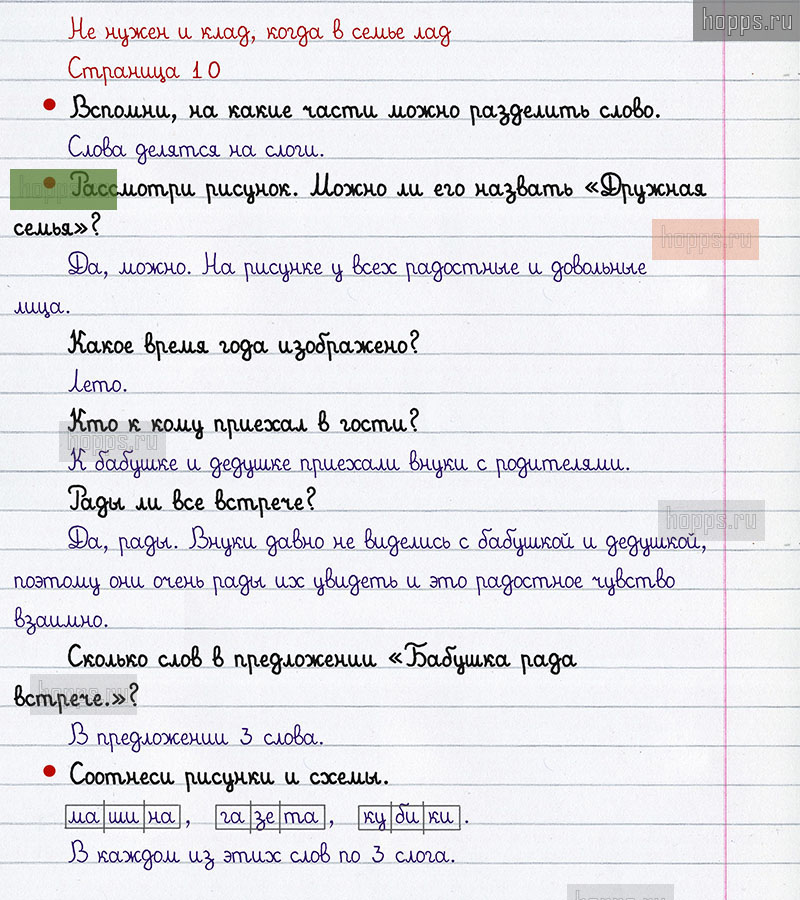 hopps.ru
Не нужен и клад, когда в семье лад
Страница 10
• Вспомни, на какие части можно разделить слово.
Слова делятся на слоги.
• Рассмотри рисунок. Можно ли его назвать «Дружная
семья»?
hopps.ru
Да, можно. На рисунке у всех радостные и довольные
лица.
Какое время года изображено?
Лето.
Кто к кому приехал в гости?
hopps.ru
К бабушке и дедушке приехали внуки с родителями.
Рады ли все встрече?
hopps.ru
Да, рады. Внуки давно не виделись с бабушкой и дедушкой,
поэтому они очень рады их увидеть и это радостное чувство
взаимно.
Сколько слов в предложении «Бабушка рада
встрече.»?
hopps.ru
В предложении 3 слова.
• Соотнеси рисунки и схемы.
ма|ши|на, га|зе|та, ку|би|ки.
В каждом из этих слов по 3 слога.